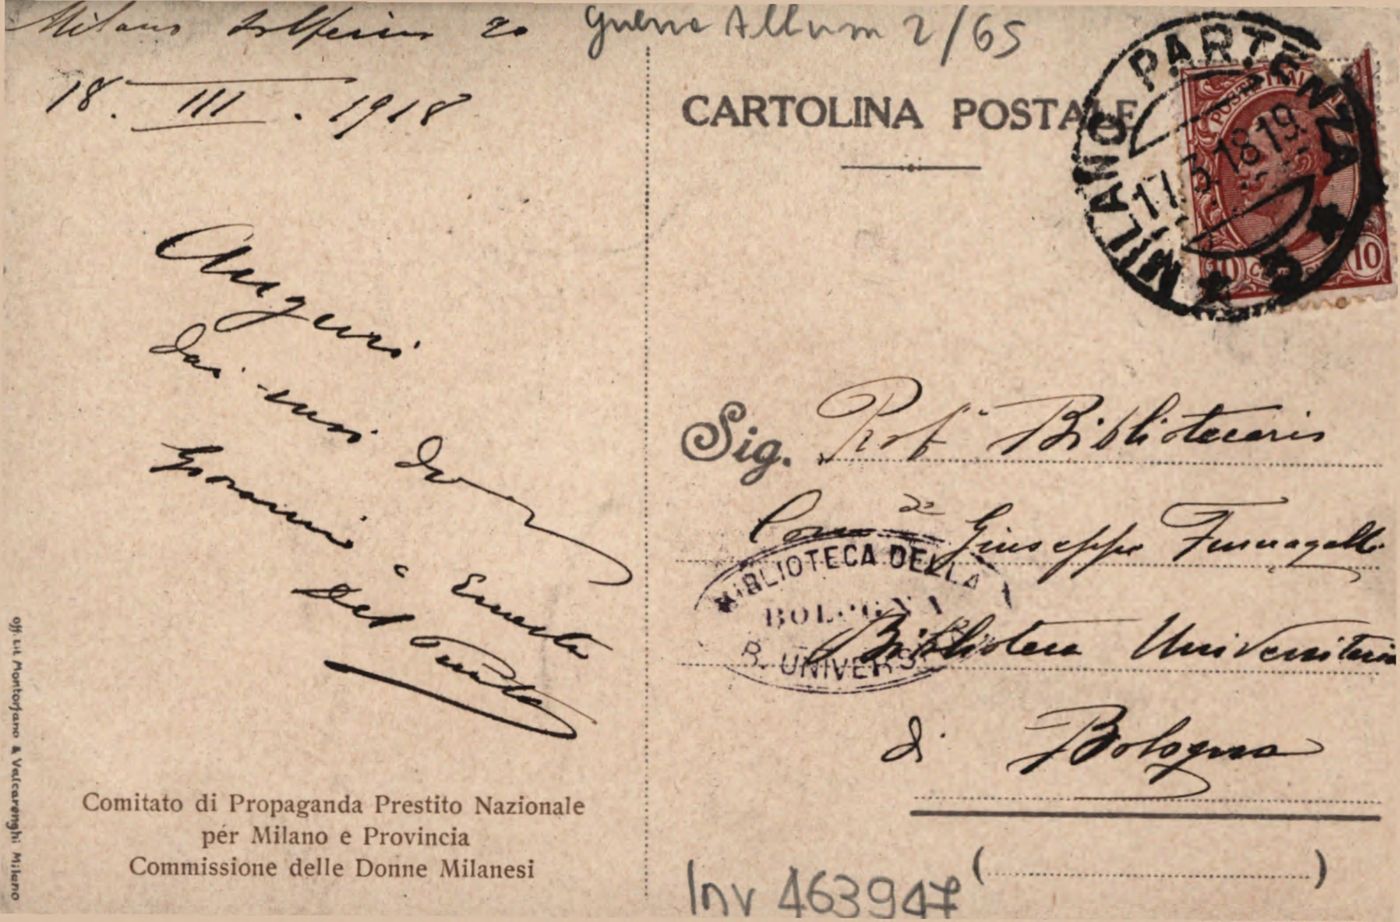 Milano Solferino 20
18. III. 1918
Guerra Album 2/65
Auguri
dai suoi
Giovanni e Ernesta
Del
Off. Lit. Montorfano & Valcarenghi Milano
Comitato di Propaganda Prestito Nazionale
pér Milano e Provincia
Commissione delle Donne Milanesi
CARTOLINA POSTALE
MILANO PARTENZA
17.3.18 19
POSTE ITALIANE
10 10
Sig. Prof. Bibliotecario
Giuseppe Fumagalli
BIBLIOTECA DELLA
BOLOGNA
R. UNIVERSITÀ
Biblioteca Universitaria
di Bologna
( )
Inv 463947